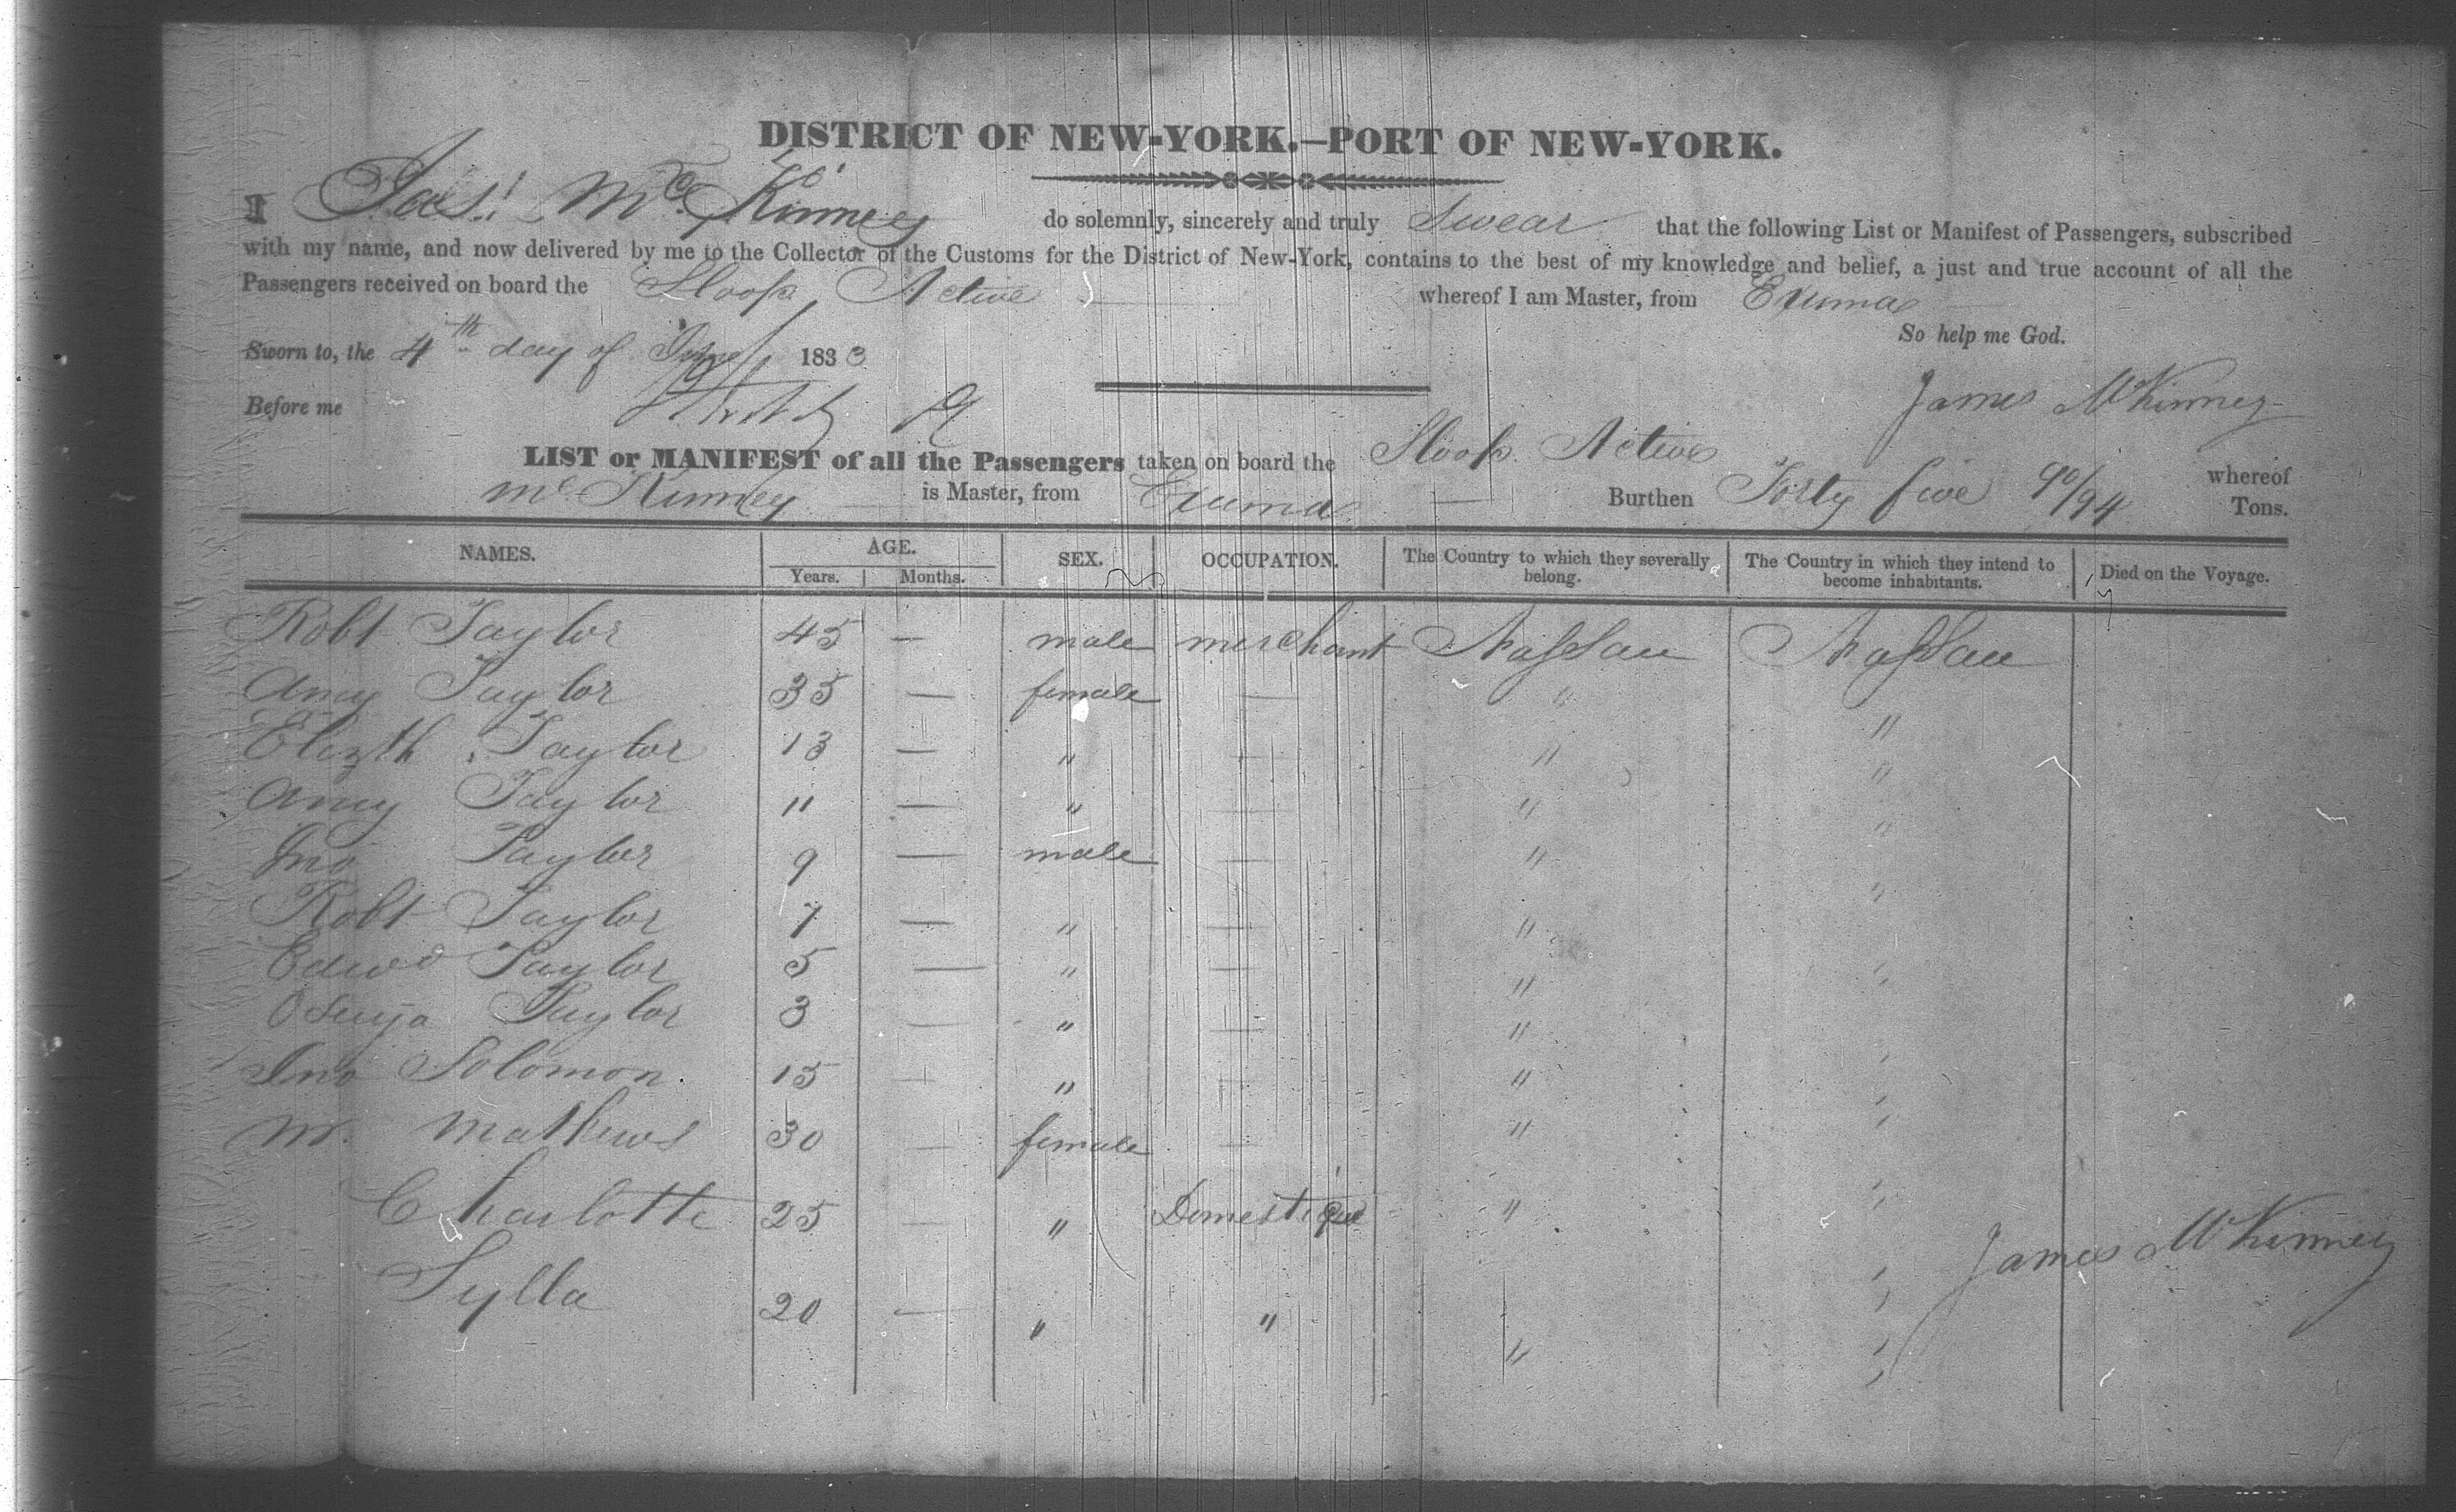 DISTRICT OF NEW-YORK.—PORT OF NEW-YORK.
I Jas. McKinney do solemnly, sincerely and truly Swear that the following List or Manifest of Passengers, subscribed
with my name, and now delivered by me to the Collector of the Customs for the District of New-York, contains to the best of my knowledge and belief, a just and true account of all the
Passengers received on board the Sloop Active whereof I am Master, from Exuma
So help me God.
Sworn to, the 4th day of 1833
Before me
James McKinney
LIST or MANIFEST of all the Passengers taken on board the Sloop Active whereof
McKinney is Master, from Exuma Burthen Forty five 90/94 Tons.
NAMES. AGE. Years. Months. SEX. OCCUPATION. The Country to which they severally belong. The Country in which they intend to become inhabitants. Died on the Voyage.
Robt Taylor 45 — male merchant Nassau Nassau
Amy Taylor 35 — female — " "
Elizth Taylor 13 — " — " "
Amy Taylor 11 — " — " "
Jno Taylor 9 — male — " "
Robt Taylor 7 — " — " "
Edwd Taylor 5 — " — " "
Taylor 3 — " — " "
Jno Solomon 15 — " — " "
M. Mathews 30 — female — " "
Charlotte 25 — " Domestique " "
Sylla 20 — " " " "
James McKinney